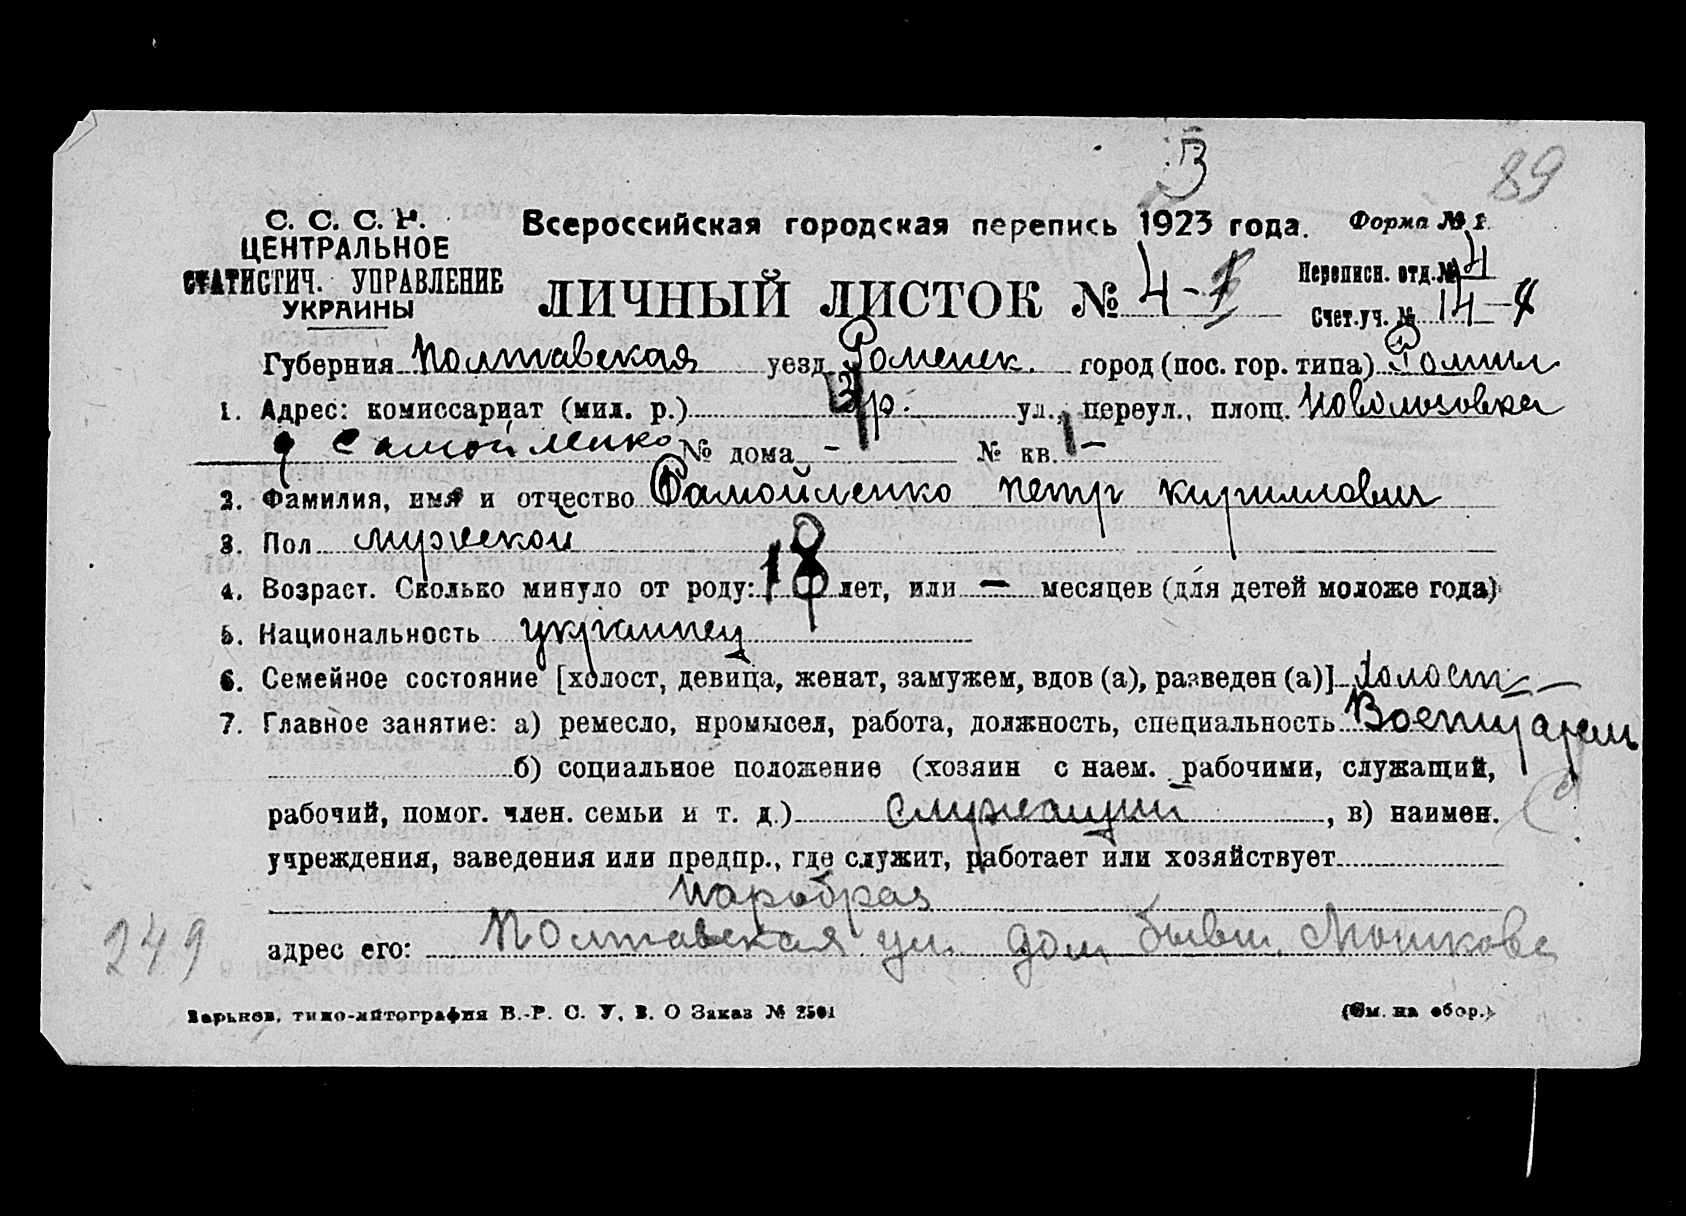 В
89
С. С. С. Р.
ЦЕНТРАЛЬНОЕ
СТАТИСТИЧ. УПРАВЛЕНИЕ
УКРАИНЫ
Всероссийская городская перепись 1923 года.
Форма № 1.
ЛИЧНЫЙ ЛИСТОК № 4-
Переписн. отд. № 4
Счет. уч. № 14-
Губерния Полтавская уезд Роменск. город (пос. гор. типа) Ромны
1. Адрес: комиссариат (мил. р.) 3 р. ул., переул., площ. Новолозовка
д Самойленко № дома - № кв. -
2. Фамилия, имя и отчество Самойленко Петр Кириллович
3. Пол мужской
4. Возраст. Сколько минуло от роду: 18 лет, или — месяцев (для детей моложе года)
5. Национальность украинец
6. Семейное состояние [холост, девица, женат, замужем, вдов (а), разведен (а)] Холост
7. Главное занятие: а) ремесло, промысел, работа, должность, специальность
б) социальное положение (хозяин с наем. рабочими, служащий,
рабочий, помог. член. семьи и т. д.) Служащий, в) наимен.
учреждения, заведения или предпр., где служит, работает или хозяйствует
Наробраз
249
адрес его: Полтавская ул. дом бывш.
Харьков, типо-литография В.-Р. С. У. В. О Заказ № 2501
(См. на обор.)